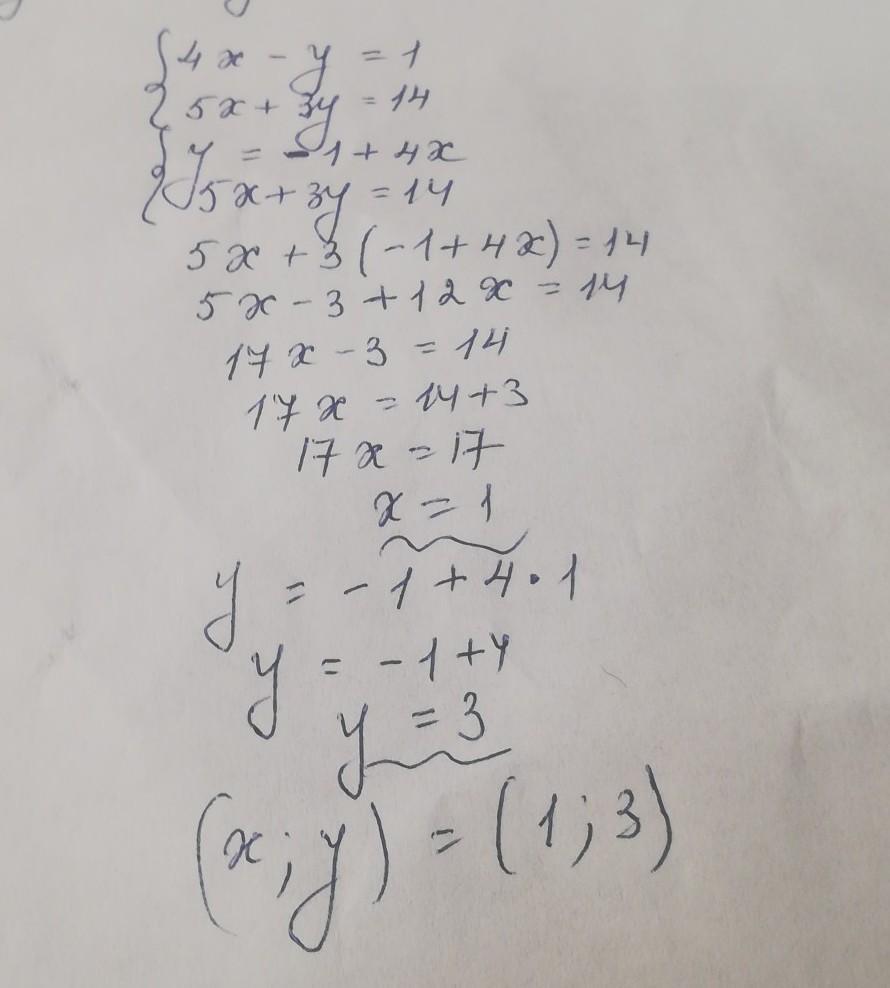 4x - y = 1
5x + 3y = 14
y = -1 + 4x
5x + 3y = 14
5x + 3(-1 + 4x) = 14
5x - 3 + 12x = 14
17x - 3 = 14
17x = 14 + 3
17x = 17
x = 1
y = -1 + 4·1
y = -1 + 4
y = 3
(x; y) = (1; 3)